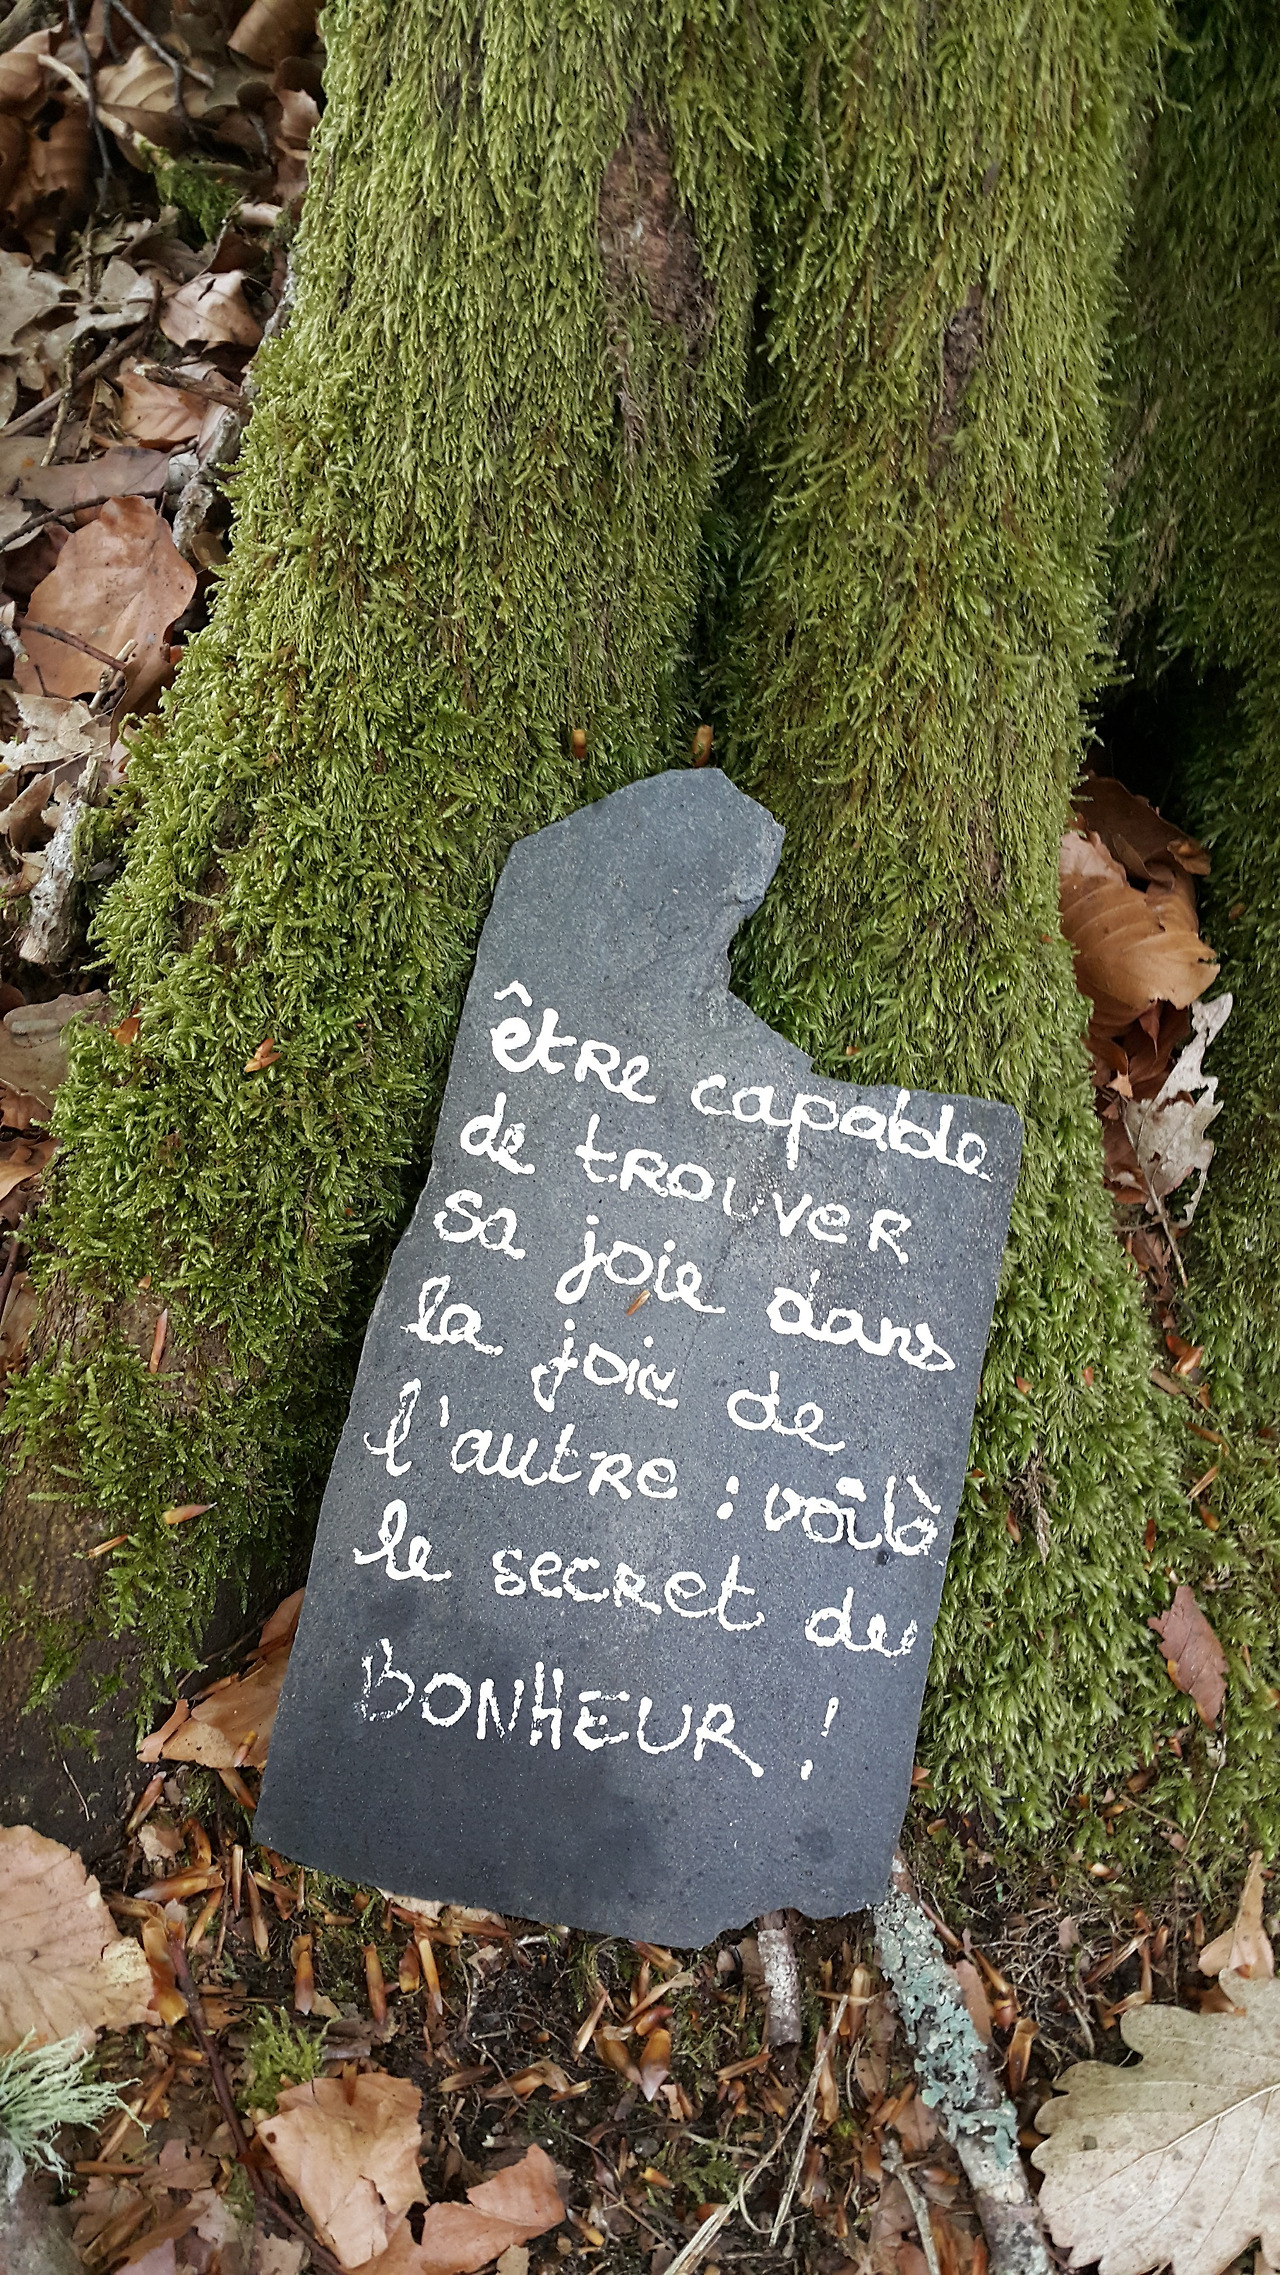 être capable
de trouver
sa joie dans
la joie de
l'autre : voilà
le secret du
BONHEUR !